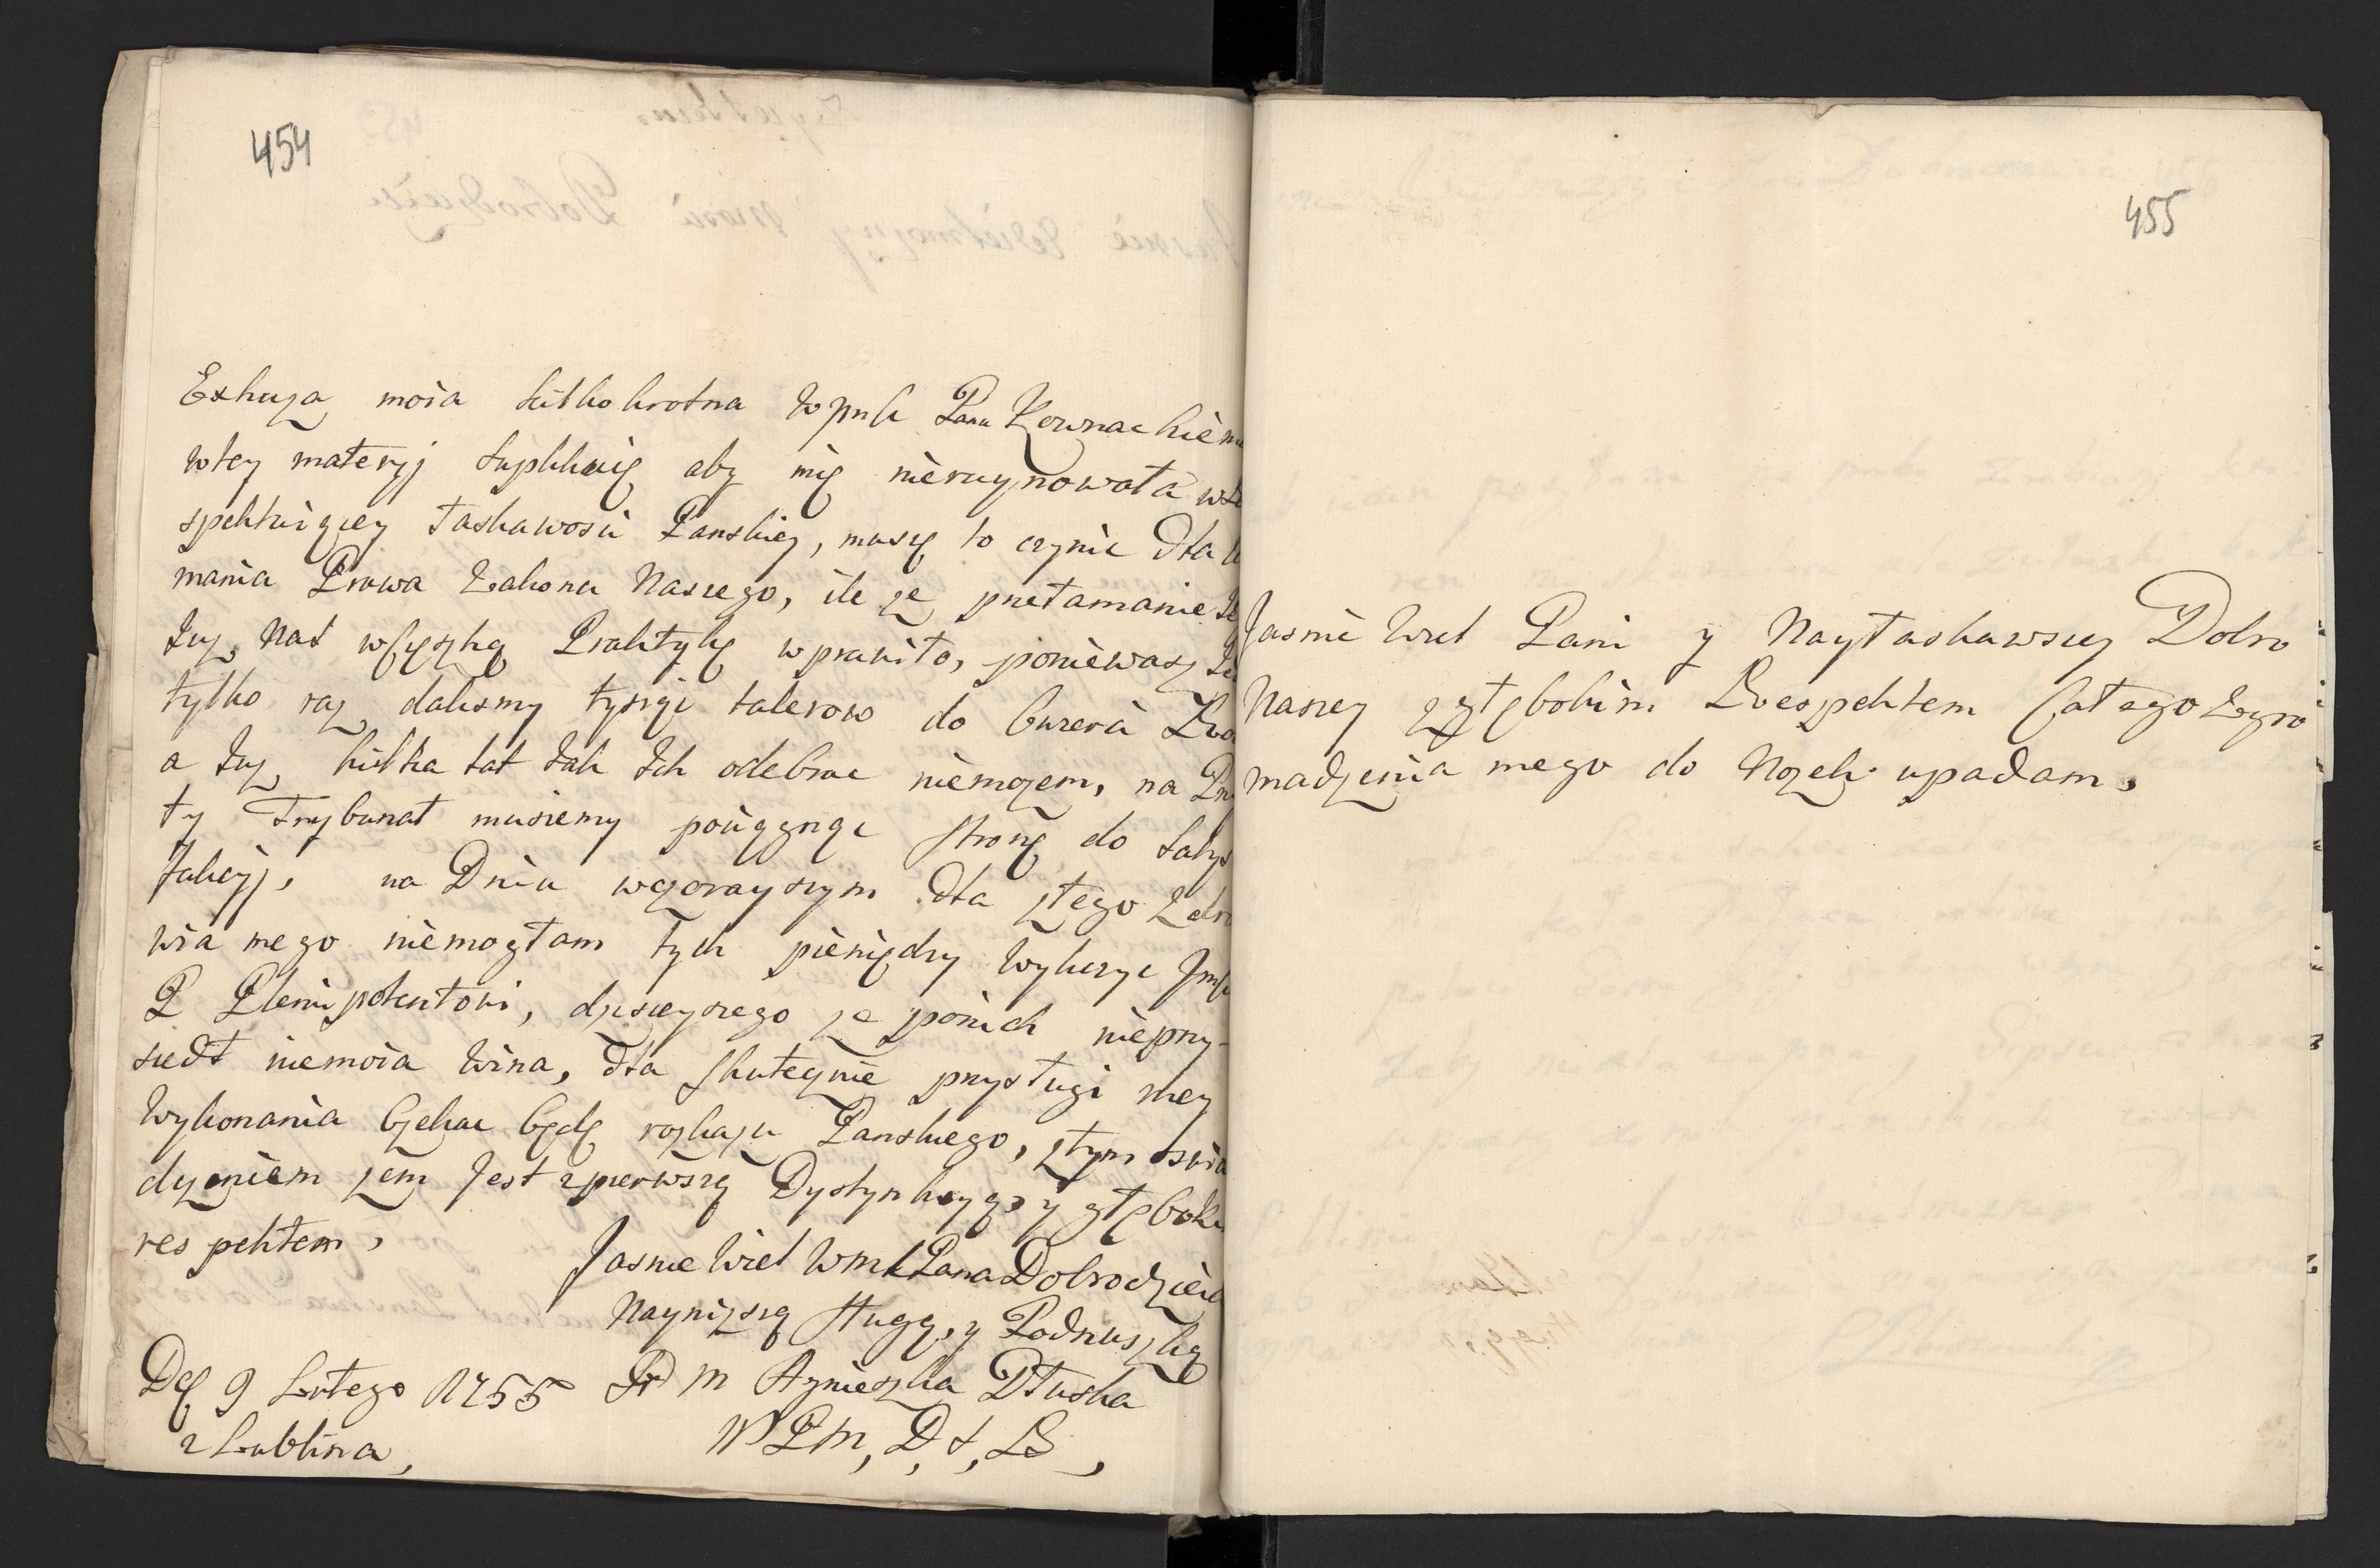 454
Exkuza moia kilko krotna w pnk Panu Kownackiemu
wtey materyj suplikuię aby mię nieruynowała wre
spektuiącey łaskawosci Panskiey, muszę to czynic dla
mania Prawa Zakonu Naszego, ile ze przełamanie
Iuz Nas wszyszką Praktykę wprawiło, poniewasz
tylko raz dalismy tysiąc talerow do
a Iuz kilka lat Iak Ich odebrac niemozem, na
ty Trybunał musiemy pociągnąc stronę do satys
fakcyj, na Dniu wczorayszym dla złego zdro
wia mego niemogłam tych pieniędzy wyliczyc Jmsci
P Plenipotentowi, dzisieyszego ze ponich nieprzy-
szedł niemoia wina, dla skutecznie przysługi mey
Wykonania czekac będę rozkazu Panskiego, ztym oswia
dczeniem zem Jest zpierwszą Dystynkcyą, y głęboki
respektem,
Jasnie Wiel Wm Pana Dobrodzieia
Nayniższą sługą, y Podnuszką
D 9 Lutego 1755 M Agnieszka Dłuska
z Lublina,
455
Jasnie Wiel Pani y Nayłaskawszey Dobro
Naszey zgłębokim Respektem Całego Zgro
madzenia mego do Nozek upadam,